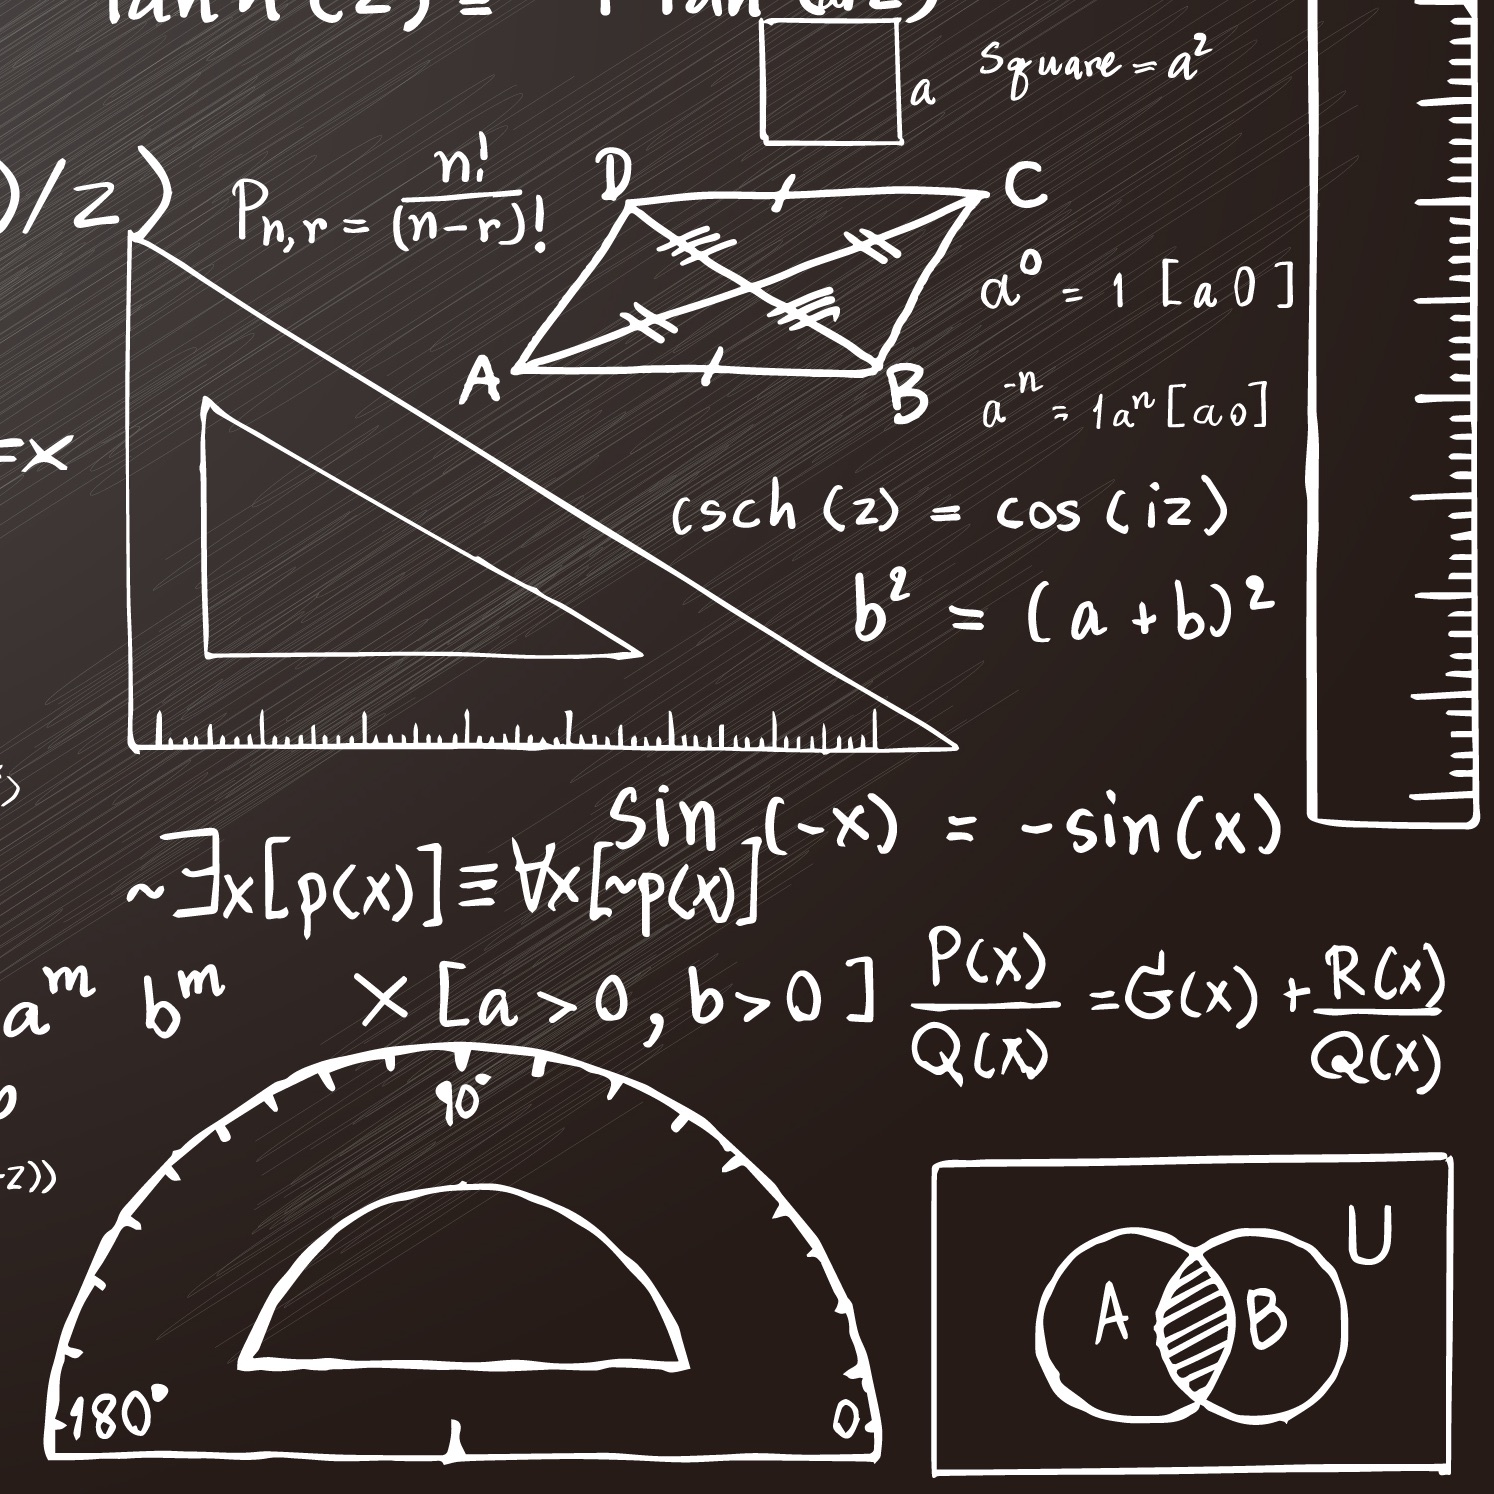 Square = a²
a
)/z)
Pn,r = n!/(n-r)!
D
C
A
B
a⁰ = 1 [a 0]
a⁻ⁿ = 1aⁿ [a 0]
=x
csch (z) = cos (iz)
b² = (a + b)²
sin (-x) = -sin(x)
~∃x[p(x)] ≡ ∀x[~p(x)]
aᵐ bᵐ × [a > 0, b > 0]
P(x)/Q(x) = G(x) + R(x)/Q(x)
90°
z))
180°
0
U
A
B